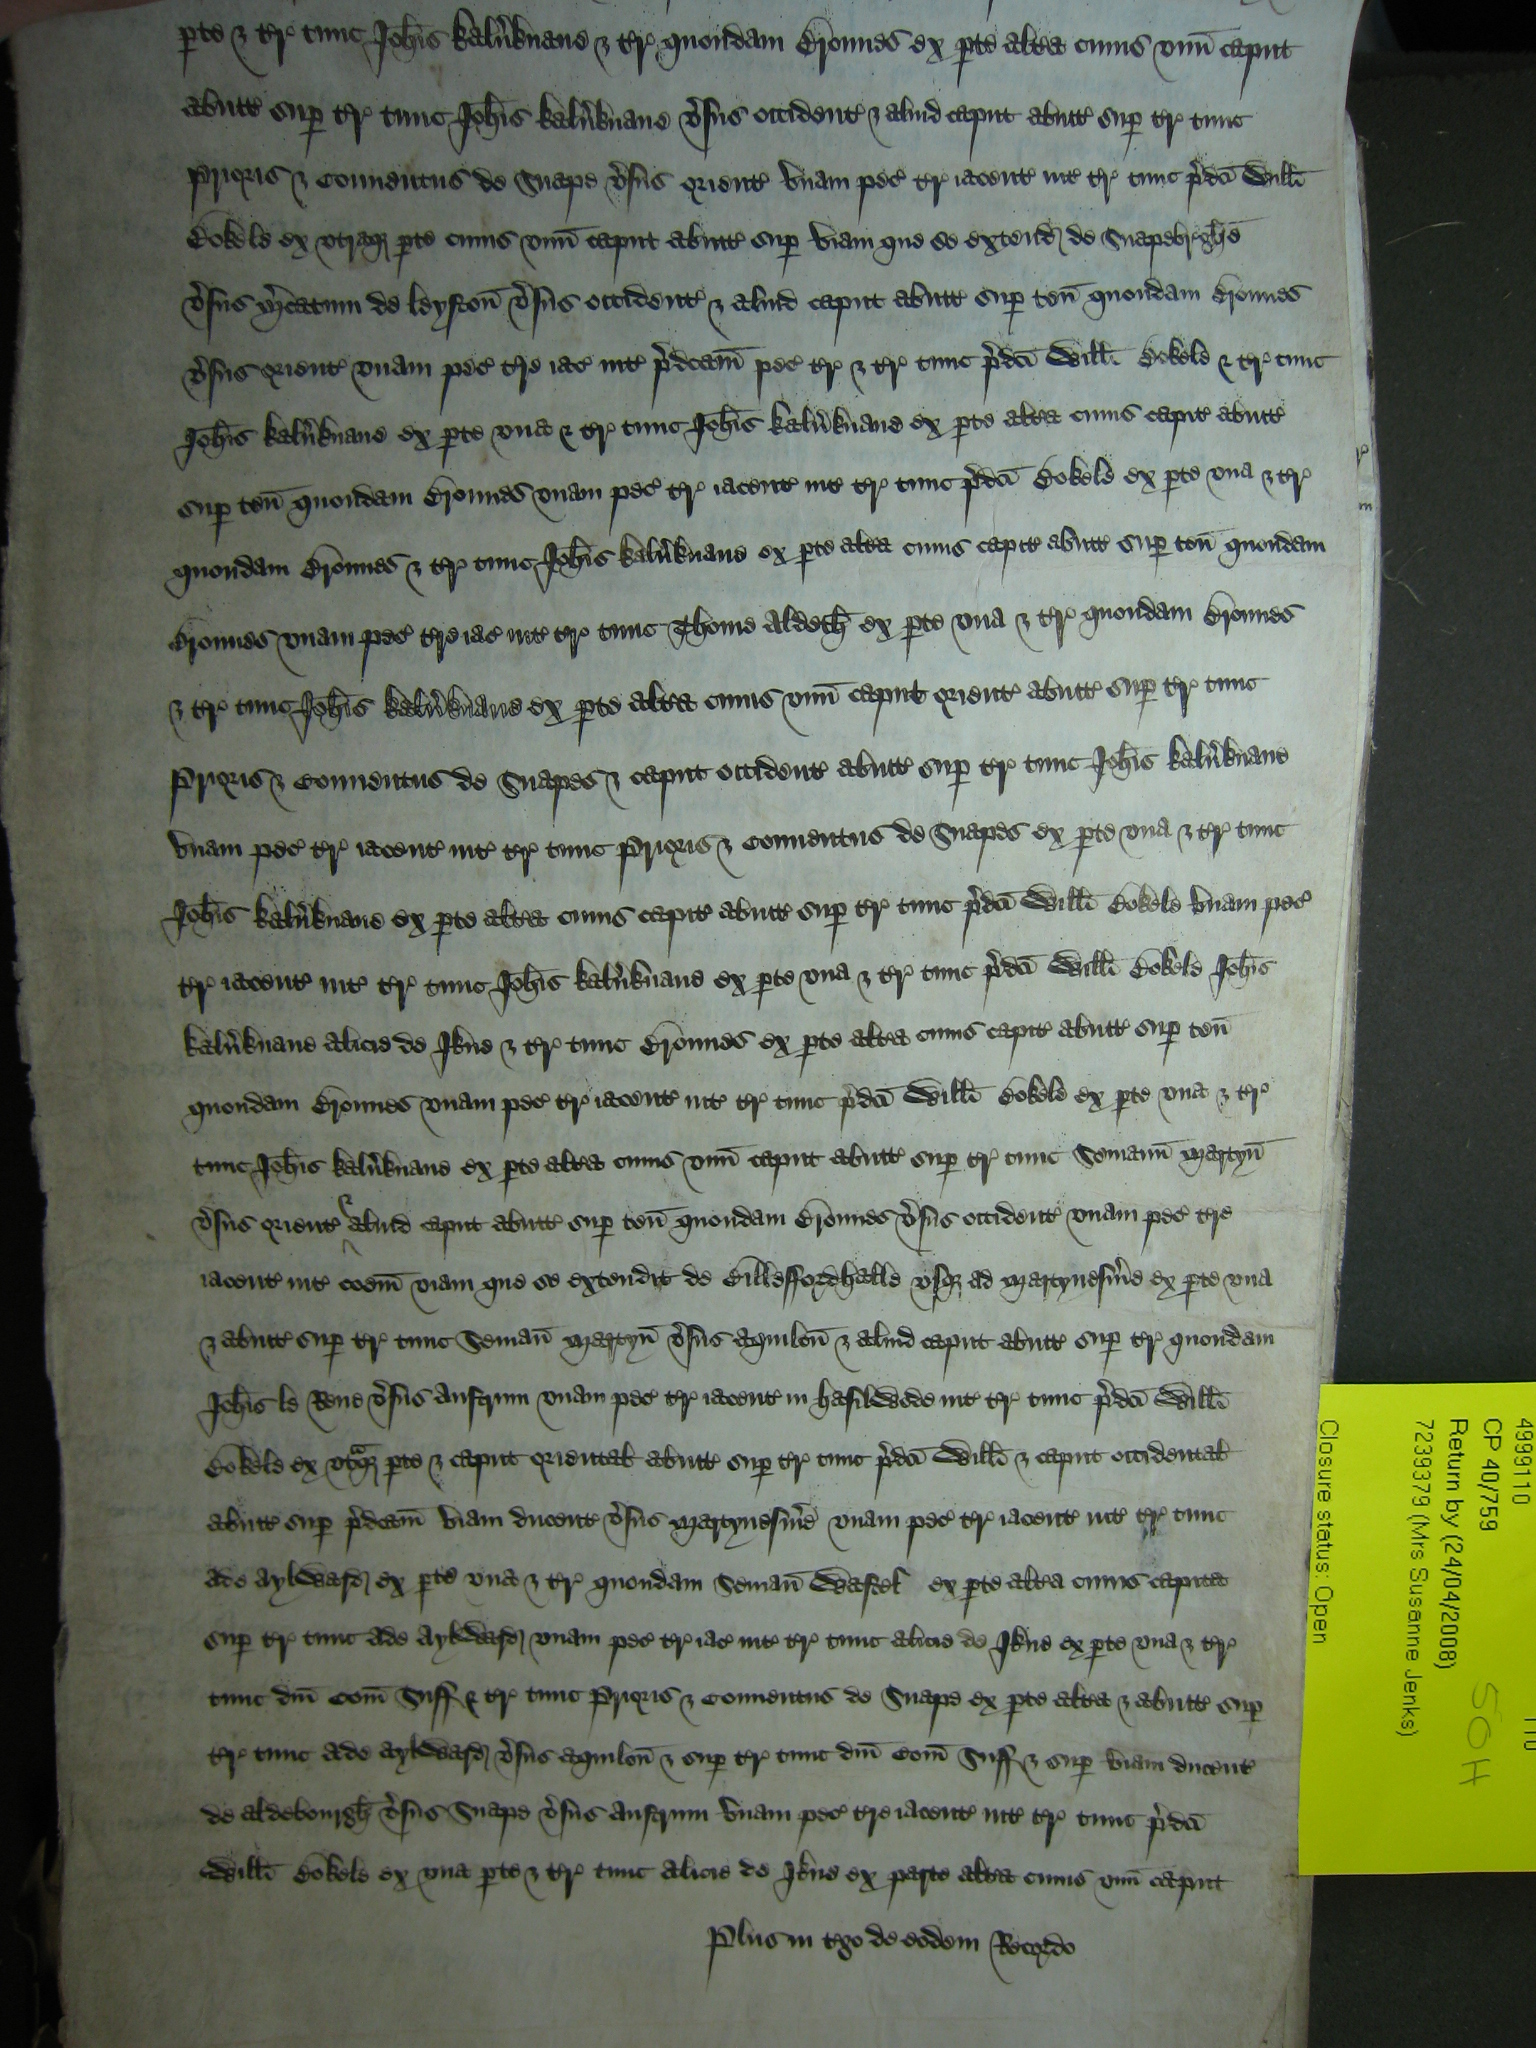 p̱te & trͬ tunc Joh̄is kalūknaue & trͬ quondam Brōnnes ex p̱te altͣa cuius vnū caput
abuttᷓ sup̱ trͬ tunc Joh̄is kalūknaue v̄sus occidentᷓ & aliud caput abuttᷓ sup̱ trͬ tunc
Prioris & Conuentus de Snape v̄sus orientᷓ vnam pecᷓ trͬ iacentᷓ intᷓ trͬ tunc p̄dc̄i Willi̅
Bokele ex vtraq̨ p̱te cuius vnū caput abuttᷓ sup̱ viam que se extend̨ de Snapebrͬgh̄e
v̄sus m̄catum de leyston̄ v̄sus occidentᷓ & aliud caput abuttᷓ sup̱ ten̄ quondam Brōnnes
v̄sus orientᷓ vnam pecᷓ tr̄e iacᷓ intᷓ p̄dcam̄ pecᷓ trͬ & trͬ tunc p̄dc̄i Willi̅ Bokele & trͬ tunc
Joh̄is kalūknaue ex p̱te vna & trͬ tunc Joh̄is kalūknaue ex p̱te altͣa cuius capitᷓ abuttᷓ
sup̱ ten̄ quondam Brōnnes vnam pecᷓ trͬ iacentᷓ intᷓ trͬ tunc p̄dc̄i Bokele ex p̱te vna & trͬ
quondam Brōnnes & trͬ tunc Joh̄is kalūknaue ex p̱te altͣa cuius capitᷓ abuttᷓ sup̱ ten̄ quondam
Brōnnes vnam pecᷓ tr̄e iacᷓ intᷓ trͬ tunc Thome Aldeth̄ ex p̱te vna & trͬ quondam Brōnnes
& trͬ tunc Joh̄is kalūknaue ex p̱te altͣa cuius vnū caput orientᷓ abuttᷓ sup̱ trͬ tunc
Prioris & Conuentus de Snapes & caput occidentᷓ abuttᷓ sup̱ trͬ tunc Joh̄is kalūknaue
vnam pecᷓ trͬ iacentᷓ intᷓ trͬ tunc Prioris & Conuentus de Snapes ex p̱te vna & trͬ tunc
Joh̄is kalūknaue ex p̱te altͣa cuius capitᷓ abuttᷓ sup̱ trͬ tunc p̄dc̄i Willi̅ Bokele vnam pecᷓ
trͬ iacentᷓ intᷓ trͬ tunc Joh̄is kalūknaue ex p̱te vna & trͬ tunc p̄dc̄i Willi̅ Bokele Joh̄is
kalūknaue Alicie de Jkne & trͬ tunc Brōnnes ex p̱te altͣa cuius capitᷓ abuttᷓ sup̱ ten̄
quondam Brōnnes vnam pecᷓ trͬ iacentᷓ intᷓ trͬ tunc p̄dc̄i Willi̅ Bokele ex p̱te vna & trͬ
tunc Joh̄is kalūknaue ex p̱te altͣa cuius vnū caput abuttᷓ sup̱ trͬ tunc Semann̄ Martyn̄
v̄sus orientᷓ & aliud caput abuttᷓ sup̱ ten̄ quondam Brōnnes v̄sus occidentᷓ vnam pecᷓ tr̄e
iacentᷓ intᷓ cōem̄ viam que se extendit de Billeffordhalle vsq̨ ad Martynesm̄e ex p̱te vna
& abuttᷓ sup̱ trͬ tunc Seman̄ Martyn̄ v̄sus aquilon̄ & aliud caput abuttᷓ sup̱ trͬ quondam
Joh̄is le Reue v̄sus austrum vnam pecᷓ trͬ iacentᷓ in hasilwode intᷓ trͬ tunc p̄dc̄i Willi̅
Bokele ex vtͣq̨ p̱te & caput oriental̄ abuttᷓ sup̱ trͬ tunc p̄dc̄i Willi̅ & caput occidental̄
abuttᷓ sup̱ p̄dcam̄ viam ducentᷓ v̄sus Martynesm̄e vnam pecᷓ trͬ iacentᷓ intᷓ trͬ tunc
Ade Aylward̨ ex p̱te vna & trͬ quondam Seman̄ Wastel ex p̱te altͣa cuius capita
sup̱ trͬ tunc Ade Aylward̨ vnam pecᷓ trͬ iacᷓ intᷓ trͬ tunc Alicie de Jkne ex p̱te vna & trͬ
tunc dn̄i Com̄ Suff & trͬ tunc Prioris & Conuentus de Snape ex p̱te altͣa & abuttᷓ sup̱
trͬ tunc Ade Aylward̨ v̄sus aquilon̄ & sup̱ trͬ tunc dn̄i Com̄ Suff & sup̱ viam ducentᷓ
de Aldebourgh̄ v̄sus Snape v̄sus austrum vnam pecᷓ tr̄e iacentᷓ intᷓ trͬ tunc p̄dc̄i
Willi̅ Bokele ex vna p̱te & trͬ tunc Alicie de Jkne ex parte altͣa cuius vnū caput
Plus in tgo de eodem Recordo
4999110
CP 40/759
Return by (24/04/2008)
7239379 (Mrs Susanne Jenks)
Closure status: Open
SGH